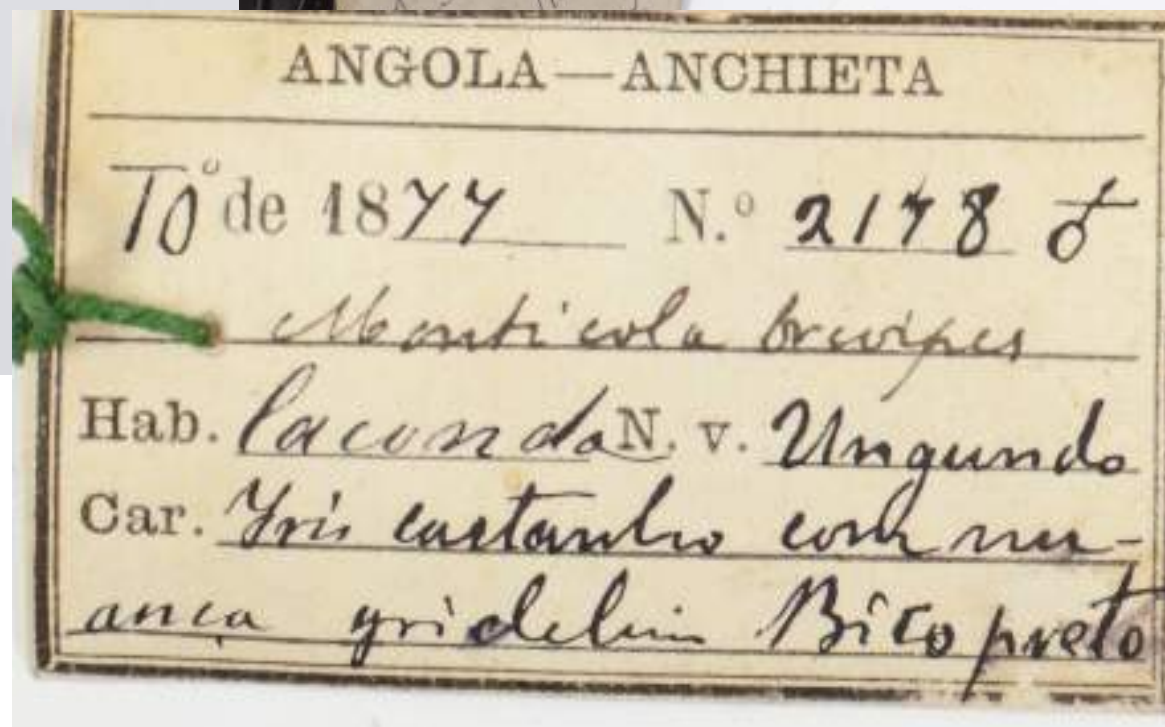 ANGOLA—ANCHIETA
10º de 1877 N.º 2178 ♂
Monticola brevipes
Hab. Caconda N. v. Ungundo
Car. Yris castanho com nu-
ança gridelin Bico preto